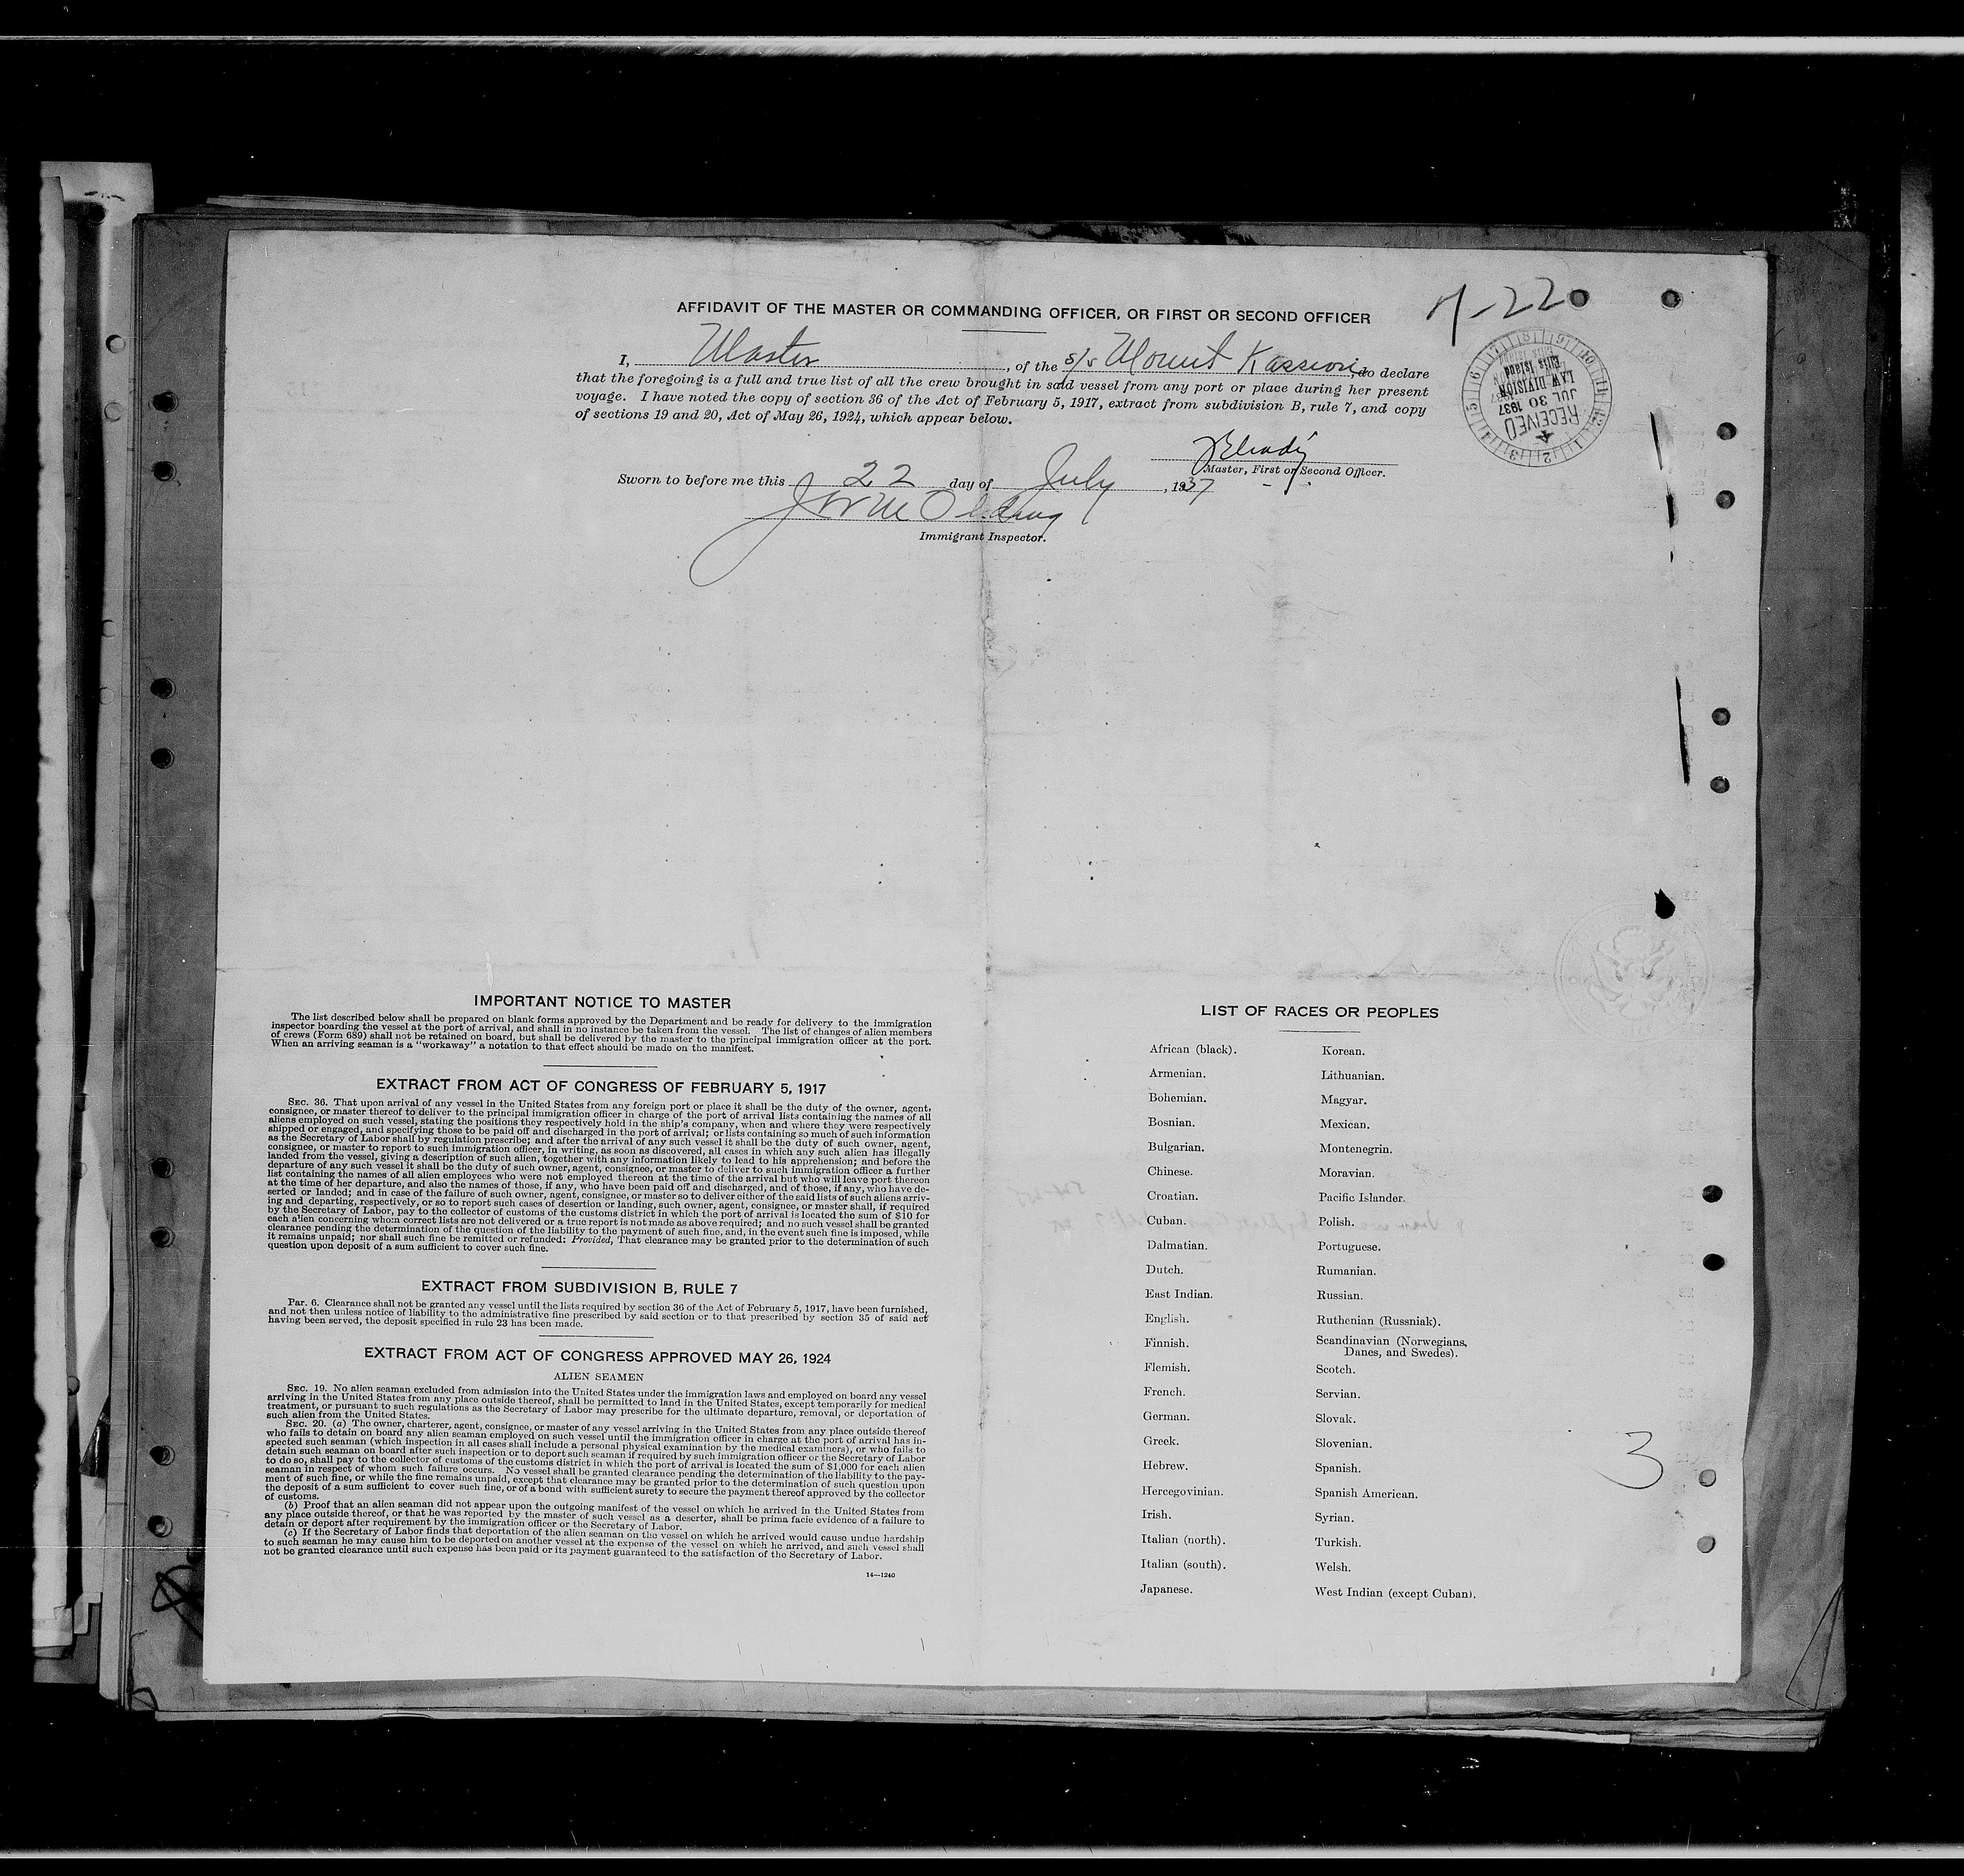 7-22
AFFIDAVIT OF THE MASTER OR COMMANDING OFFICER, OR FIRST OR SECOND OFFICER
I, Master, of the s/s Mount Kassion, do declare
that the foregoing is a full and true list of all the crew brought in said vessel from any port or place during her present
voyage. I have noted the copy of section 36 of the Act of February 5, 1917, extract from subdivision B, rule 7, and copy
of sections 19 and 20, Act of May 26, 1924, which appear below.
RECEIVED
JUL 30 1937
LAW DIVISION
Ellis Island
Master, First or Second Officer.
Sworn to before me this 22 day of July, 1937
Immigrant Inspector.
IMPORTANT NOTICE TO MASTER
The list described below shall be prepared on blank forms approved by the Department and be ready for delivery to the immigration
inspector boarding the vessel at the port of arrival, and shall in no instance be taken from the vessel. The list of changes of alien members
of crews (Form 689) shall not be retained on board, but shall be delivered by the master to the principal immigration officer at the port.
When an arriving seaman is a "workaway" a notation to that effect should be made on the manifest.
EXTRACT FROM ACT OF CONGRESS OF FEBRUARY 5, 1917
SEC. 36. That upon arrival of any vessel in the United States from any foreign port or place it shall be the duty of the owner, agent,
consignee, or master thereof to deliver to the principal immigration officer in charge of the port of arrival lists containing the names of all
aliens employed on such vessel, stating the positions they respectively hold in the ship's company, when and where they were respectively
shipped or engaged, and specifying those to be paid off and discharged in the port of arrival; or lists containing so much of such information
as the Secretary of Labor shall by regulation prescribe; and after the arrival of any such vessel it shall be the duty of such owner, agent,
consignee, or master to report to such immigration officer, in writing, as soon as discovered, all cases in which any such alien has illegally
landed from the vessel, giving a description of such alien, together with any information likely to lead to his apprehension; and before the
departure of any such vessel it shall be the duty of such owner, agent, consignee, or master to deliver to such immigration officer a further
list containing the names of all alien employees who were not employed thereon at the time of the arrival but who will leave port thereon
at the time of her departure, and also the names of those, if any, who have been paid off and discharged, and of those, if any, who have de-
serted or landed; and in case of the failure of such owner, agent, consignee, or master so to deliver either of the said lists of such aliens arriv-
ing and departing, respectively, or so to report such cases of desertion or landing, such owner, agent, consignee, or master shall, if required
by the Secretary of Labor, pay to the collector of customs of the customs district in which the port of arrival is located the sum of $10 for
each alien concerning whom correct lists are not delivered or a true report is not made as above required; and no such vessel shall be granted
clearance pending the determination of the question of the liability to the payment of such fine, and, in the event such fine is imposed, while
it remains unpaid; nor shall such fine be remitted or refunded: Provided, That clearance may be granted prior to the determination of such
question upon deposit of a sum sufficient to cover such fine.
EXTRACT FROM SUBDIVISION B, RULE 7
Par. 6. Clearance shall not be granted any vessel until the lists required by section 36 of the Act of February 5, 1917, have been furnished,
and not then unless notice of liability to the administrative fine prescribed by said section or to that prescribed by section 35 of said act
having been served, the deposit specified in rule 23 has been made.
EXTRACT FROM ACT OF CONGRESS APPROVED MAY 26, 1924
ALIEN SEAMEN
SEC. 19. No alien seaman excluded from admission into the United States under the immigration laws and employed on board any vessel
arriving in the United States from any place outside thereof, shall be permitted to land in the United States, except temporarily for medical
treatment, or pursuant to such regulations as the Secretary of Labor may prescribe for the ultimate departure, removal, or deportation of
such alien from the United States.
SEC. 20. (a) The owner, charterer, agent, consignee, or master of any vessel arriving in the United States from any place outside thereof
who fails to detain on board any alien seaman employed on such vessel until the immigration officer in charge at the port of arrival has in-
spected such seaman (which inspection in all cases shall include a personal physical examination by the medical examiners), or who fails to
detain such seaman on board after such inspection or to deport such seaman if required by such immigration officer or the Secretary of Labor
to do so, shall pay to the collector of customs of the customs district in which the port of arrival is located the sum of $1,000 for each alien
seaman in respect of whom such failure occurs. No vessel shall be granted clearance pending the determination of the liability to the pay-
ment of such fine, or while the fine remains unpaid, except that clearance may be granted prior to the determination of such question upon
the deposit of a sum sufficient to cover such fine, or of a bond with sufficient surety to secure the payment thereof approved by the collector
of customs.
(b) Proof that an alien seaman did not appear upon the outgoing manifest of the vessel on which he arrived in the United States from
any place outside thereof, or that he was reported by the master of such vessel as a deserter, shall be prima facie evidence of a failure to
detain or deport after requirement by the immigration officer or the Secretary of Labor.
(c) If the Secretary of Labor finds that deportation of the alien seaman on the vessel on which he arrived would cause undue hardship
to such seaman he may cause him to be deported on another vessel at the expense of the vessel on which he arrived, and such vessel shall
not be granted clearance until such expense has been paid or its payment guaranteed to the satisfaction of the Secretary of Labor.
14—1240
LIST OF RACES OR PEOPLES
African (black).
Armenian.
Bohemian.
Bosnian.
Bulgarian.
Chinese.
Croatian.
Cuban.
Dalmatian.
Dutch.
East Indian.
English.
Finnish.
Flemish.
French.
German.
Greek.
Hebrew.
Hercegovinian.
Irish.
Italian (north).
Italian (south).
Japanese.
Korean.
Lithuanian.
Magyar.
Mexican.
Montenegrin.
Moravian.
Pacific Islander.
Polish.
Portuguese.
Rumanian.
Russian.
Ruthenian (Russniak).
Scandinavian (Norwegians,
Danes, and Swedes).
Scotch.
Servian.
Slovak.
Slovenian.
Spanish.
Spanish American.
Syrian.
Turkish.
Welsh.
West Indian (except Cuban).
3